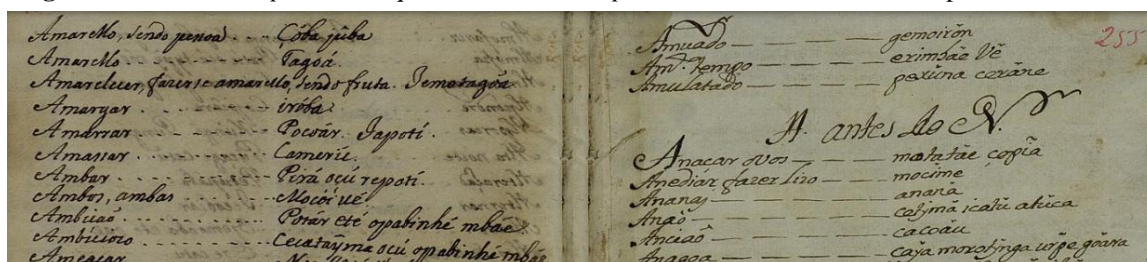 Amarello, sendo pessoa . . . - Çôba jûba
Amarello . . . . . . - - - Tagoá.
Amarelecer, fazerse amarello, sendo fruta. Jemotagoá.
Amargar . . . . . - - - irôba.
Amarrar - - - - - - - - - Pocoár. Japotí.
Amassar . . . . . . . . - - Camerîc.
Ambar . . . . . . . . . - - Pirá oçú repotí.
Ambos, ambas - - - - - Mocôi vé.
Ambiçaõ . . . . . . . . . - - Potár eté opabinhé mbäe.
Ambicioso . . . . . . . . . . . Cecatëyma oçú opabinhé mbäe.
Ameaçar
255
Amuado — — — — — gemoirôn
Am.to tempo — — — — erimbäe vê
Amulatado — — — — pexuna ceráne
A. antes do N.
Anaçar ovos — — — — motatäe çopîa
Anediár fazer lizo — — mocime
Ananas — — — — — ananá
Anaõ — — — — —
Anciaõ — — — — — cacoáu
Anagoa — — — — caÿa morotinga